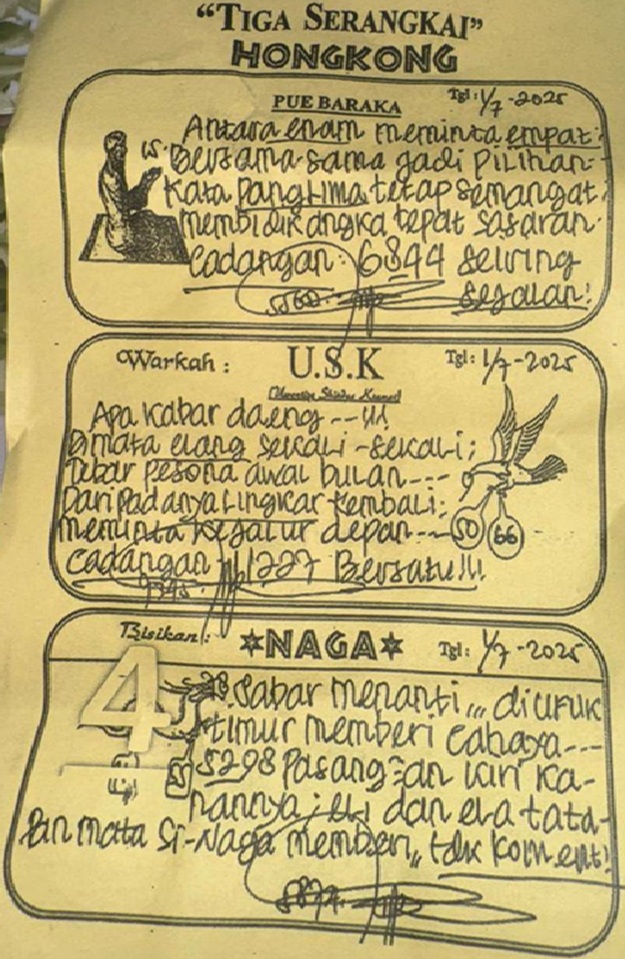 "TIGA SERANGKAI"
HONGKONG
PUE BARAKA
Tgl: 1/7-2025
Antara enam meminta empat:
Bersama-sama jadi pilihan:-
Kata panglima tetap semangat:
membidik angka tepat sasaran.
Cadangan: 6844 seiring
sejalan!
Warkah:
U.S.K
Tgl: 1/7-2025
Apa kabar daeng --!!!
Dimata elang sekali-sekali;
Tebar pesona awal bulan---
Daripadanya lingkar kembali:
meminta kejalur depan---
50 66
Cadangan 1227 Bersatu!!!
Bisikan:
*NAGA*
Tgl: 1/7-2025
4
Sabar menanti ,,, diufuk
timur memberi cahaya---
5298 Pasangan kiri ka-
nannya; eli dan ela tata-
pan mata si-Naga memberi,, tdk koment!